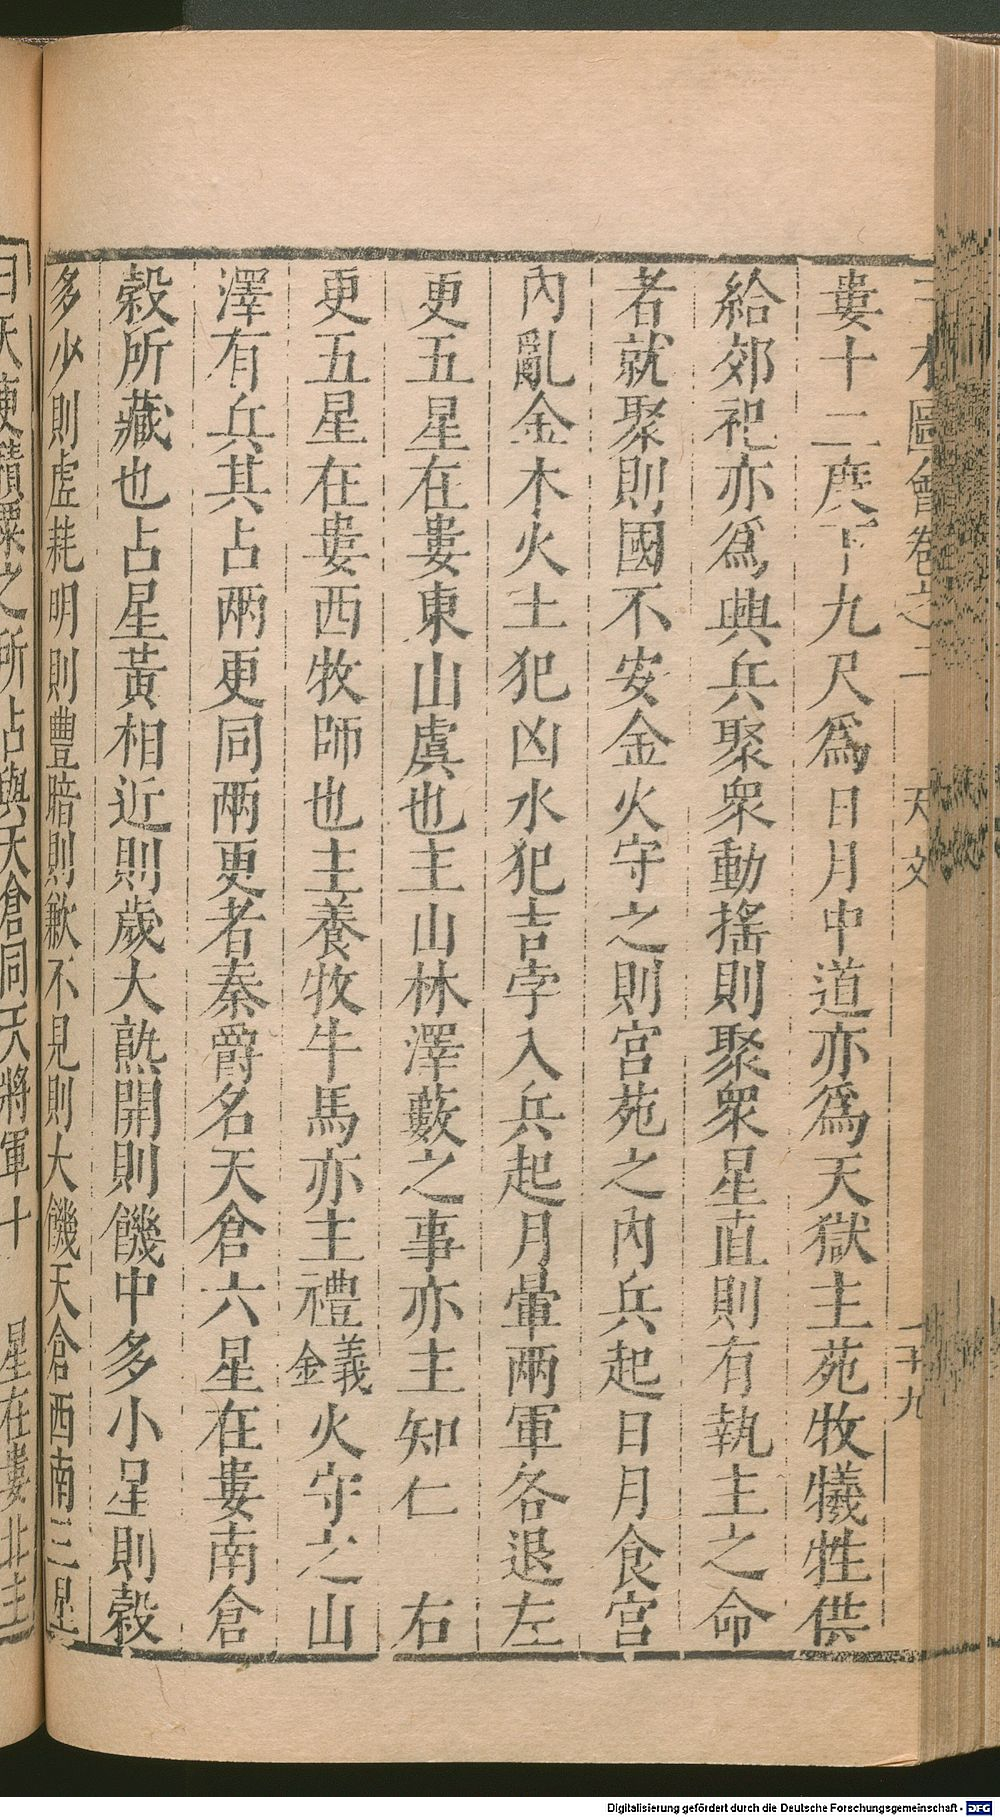 三才圖會卷之二 天文 二十九
婁十二度下九尺爲日月中道亦爲天獄主苑牧犧牲供
給郊祀亦爲興兵聚衆動搖則聚衆星直則有執主之命
者就聚則國不安金火守之則宮苑之內兵起日月食宮
內亂金木火土犯凶水犯吉孛入兵起月暈兩軍各退左
更五星在婁東山虞也主山林澤藪之事亦主知仁 右
更五星在婁西牧師也主養牧牛馬亦主禮義金火守之山
澤有兵其占兩更同兩更者秦爵名天倉六星在婁南倉
穀所藏也占星黃相近則歲大熟開則饑中多小星則穀
多少則虛耗明則豐暗則歉不見則大饑天倉西南三星
曰天庾積粟之所占與天倉同天將軍十 星在婁北主
Digitalisierung gefördert durch die Deutsche Forschungsgemeinschaft - DFG